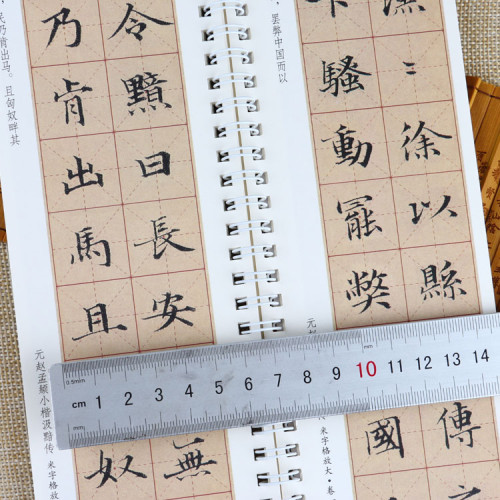 漢〻徐以縣
傳
下騷動罷弊
國
罢弊中国而以
令黯曰長安
無
乃肯出馬且
奴
民乃肯出马。且匈奴畔其
元赵孟頫小楷汲黯传 米字格放大
元
米字格放大·卷
0.5mm
mm
cm 1 2 3 4 5 6 7 8 9 10 11 12 13 14